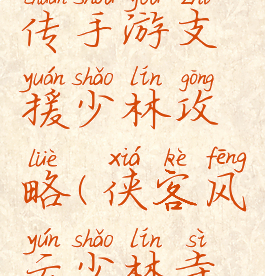 chuán shǒu yóu zhī
传手游支
yuán shǎo lín gōng
援少林攻
lüè xiá kè fēng
略(侠客风
yún shǎo lín sì
云少林寺